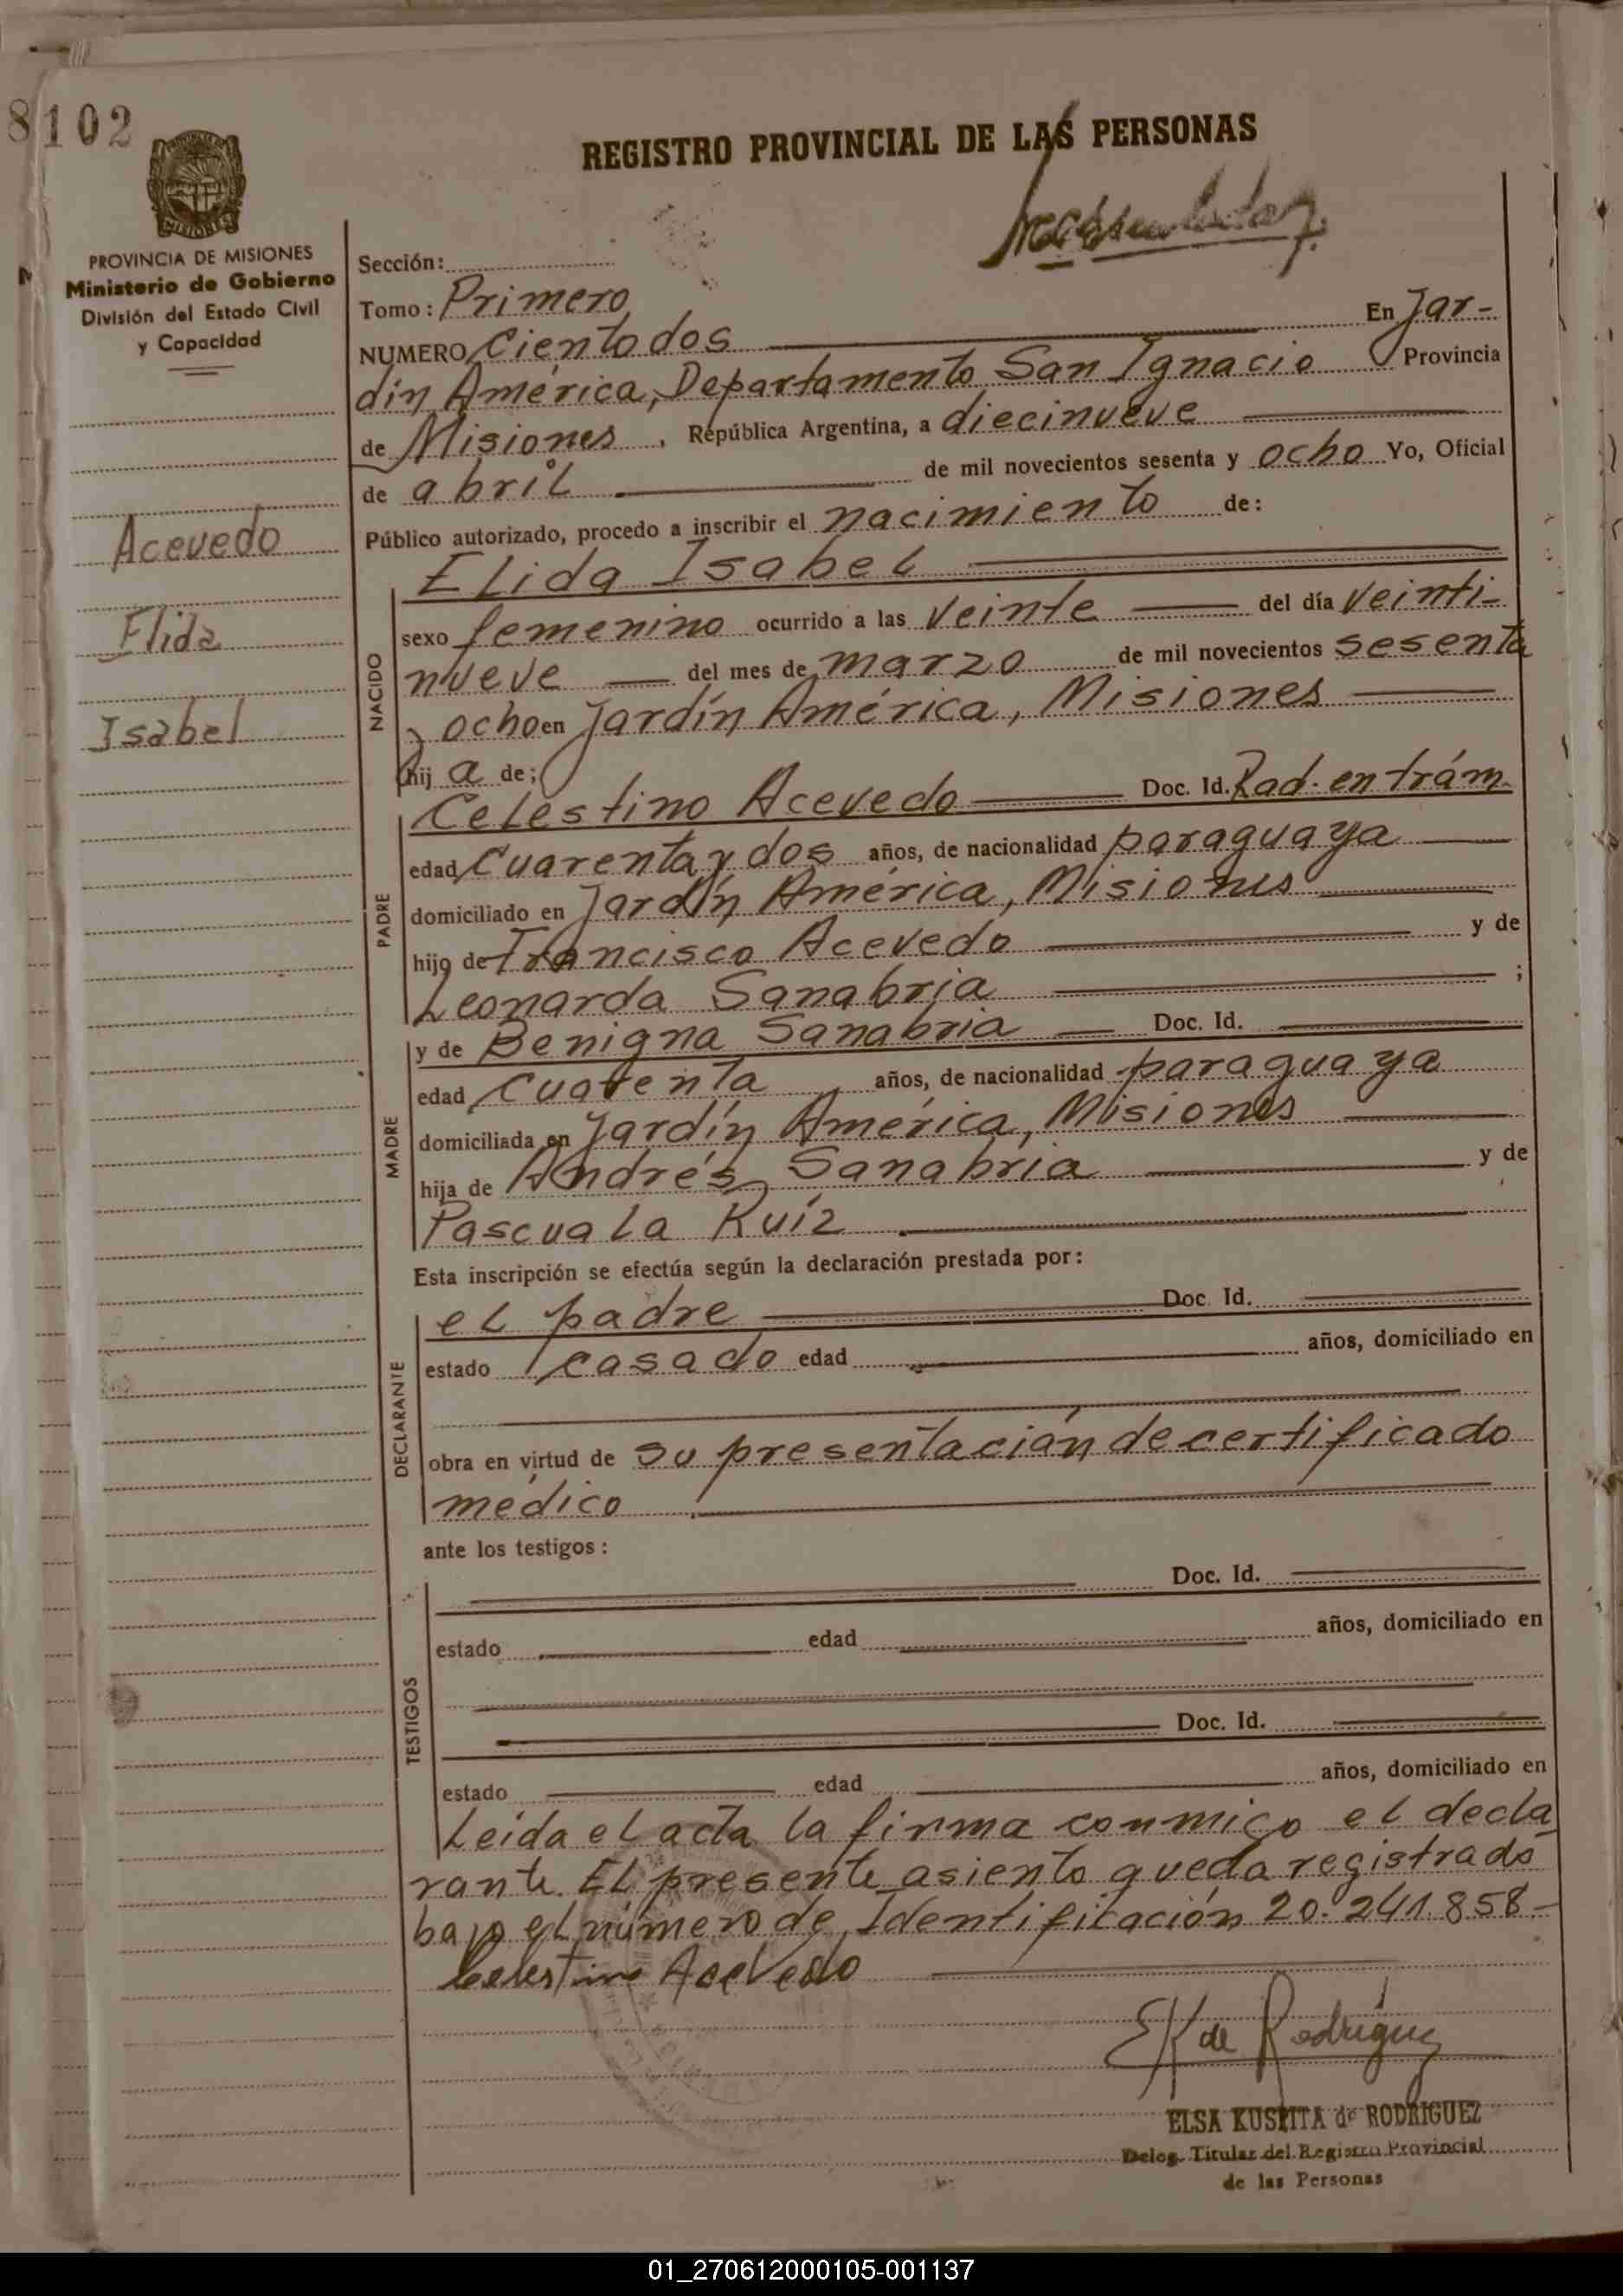 8102
REGISTRO PROVINCIAL DE LAS PERSONAS
MISIONES
PROVINCIA DE MISIONES
Ministerio de Gobierno
División del Estado Civil
y Capacidad
Acevedo
Elida
Isabel
Sección:
Tomo: Primero
NUMERO Ciento dos En Jar-
dín América, Departamento San Ignacio Provincia
de Misiones, República Argentina, a diecinueve
de abril de mil novecientos sesenta y ocho Yo, Oficial
Público autorizado, procedo a inscribir el nacimiento de:
NACIDO
Elida Isabel
sexo femenino ocurrido a las veinte del día veinti-
nueve del mes de marzo de mil novecientos sesenta
y ocho en Jardín América, Misiones
hij a de;
PADRE
Celestino Acevedo Doc. Id. Rad. en trám.
edad Cuarenta y dos años, de nacionalidad paraguaya
domiciliado en Jardín América, Misiones
hijo de Francisco Acevedo y de
Leonarda Sanabria ;
MADRE
y de Benigna Sanabria Doc. Id.
edad cuarenta años, de nacionalidad paraguaya
domiciliada en Jardín América, Misiones
hija de Andrés Sanabria y de
Pascuala Ruíz
Esta inscripción se efectúa según la declaración prestada por:
DECLARANTE
el padre Doc. Id.
estado casado edad años, domiciliado en
obra en virtud de su presentación de certificado
médico
ante los testigos:
TESTIGOS
Doc. Id.
estado edad años, domiciliado en
Doc. Id.
estado edad años, domiciliado en
Leída el acta la firma conmigo el decla
rante. El presente asiento queda registrado
bajo el número de Identificación 20.241.858.-
Celestino Acevedo
EK de Rodríguez
ELSA KUSZITA de RODRIGUEZ
Deleg. Titular del Registro Provincial
de las Personas
01_270612000105-001137